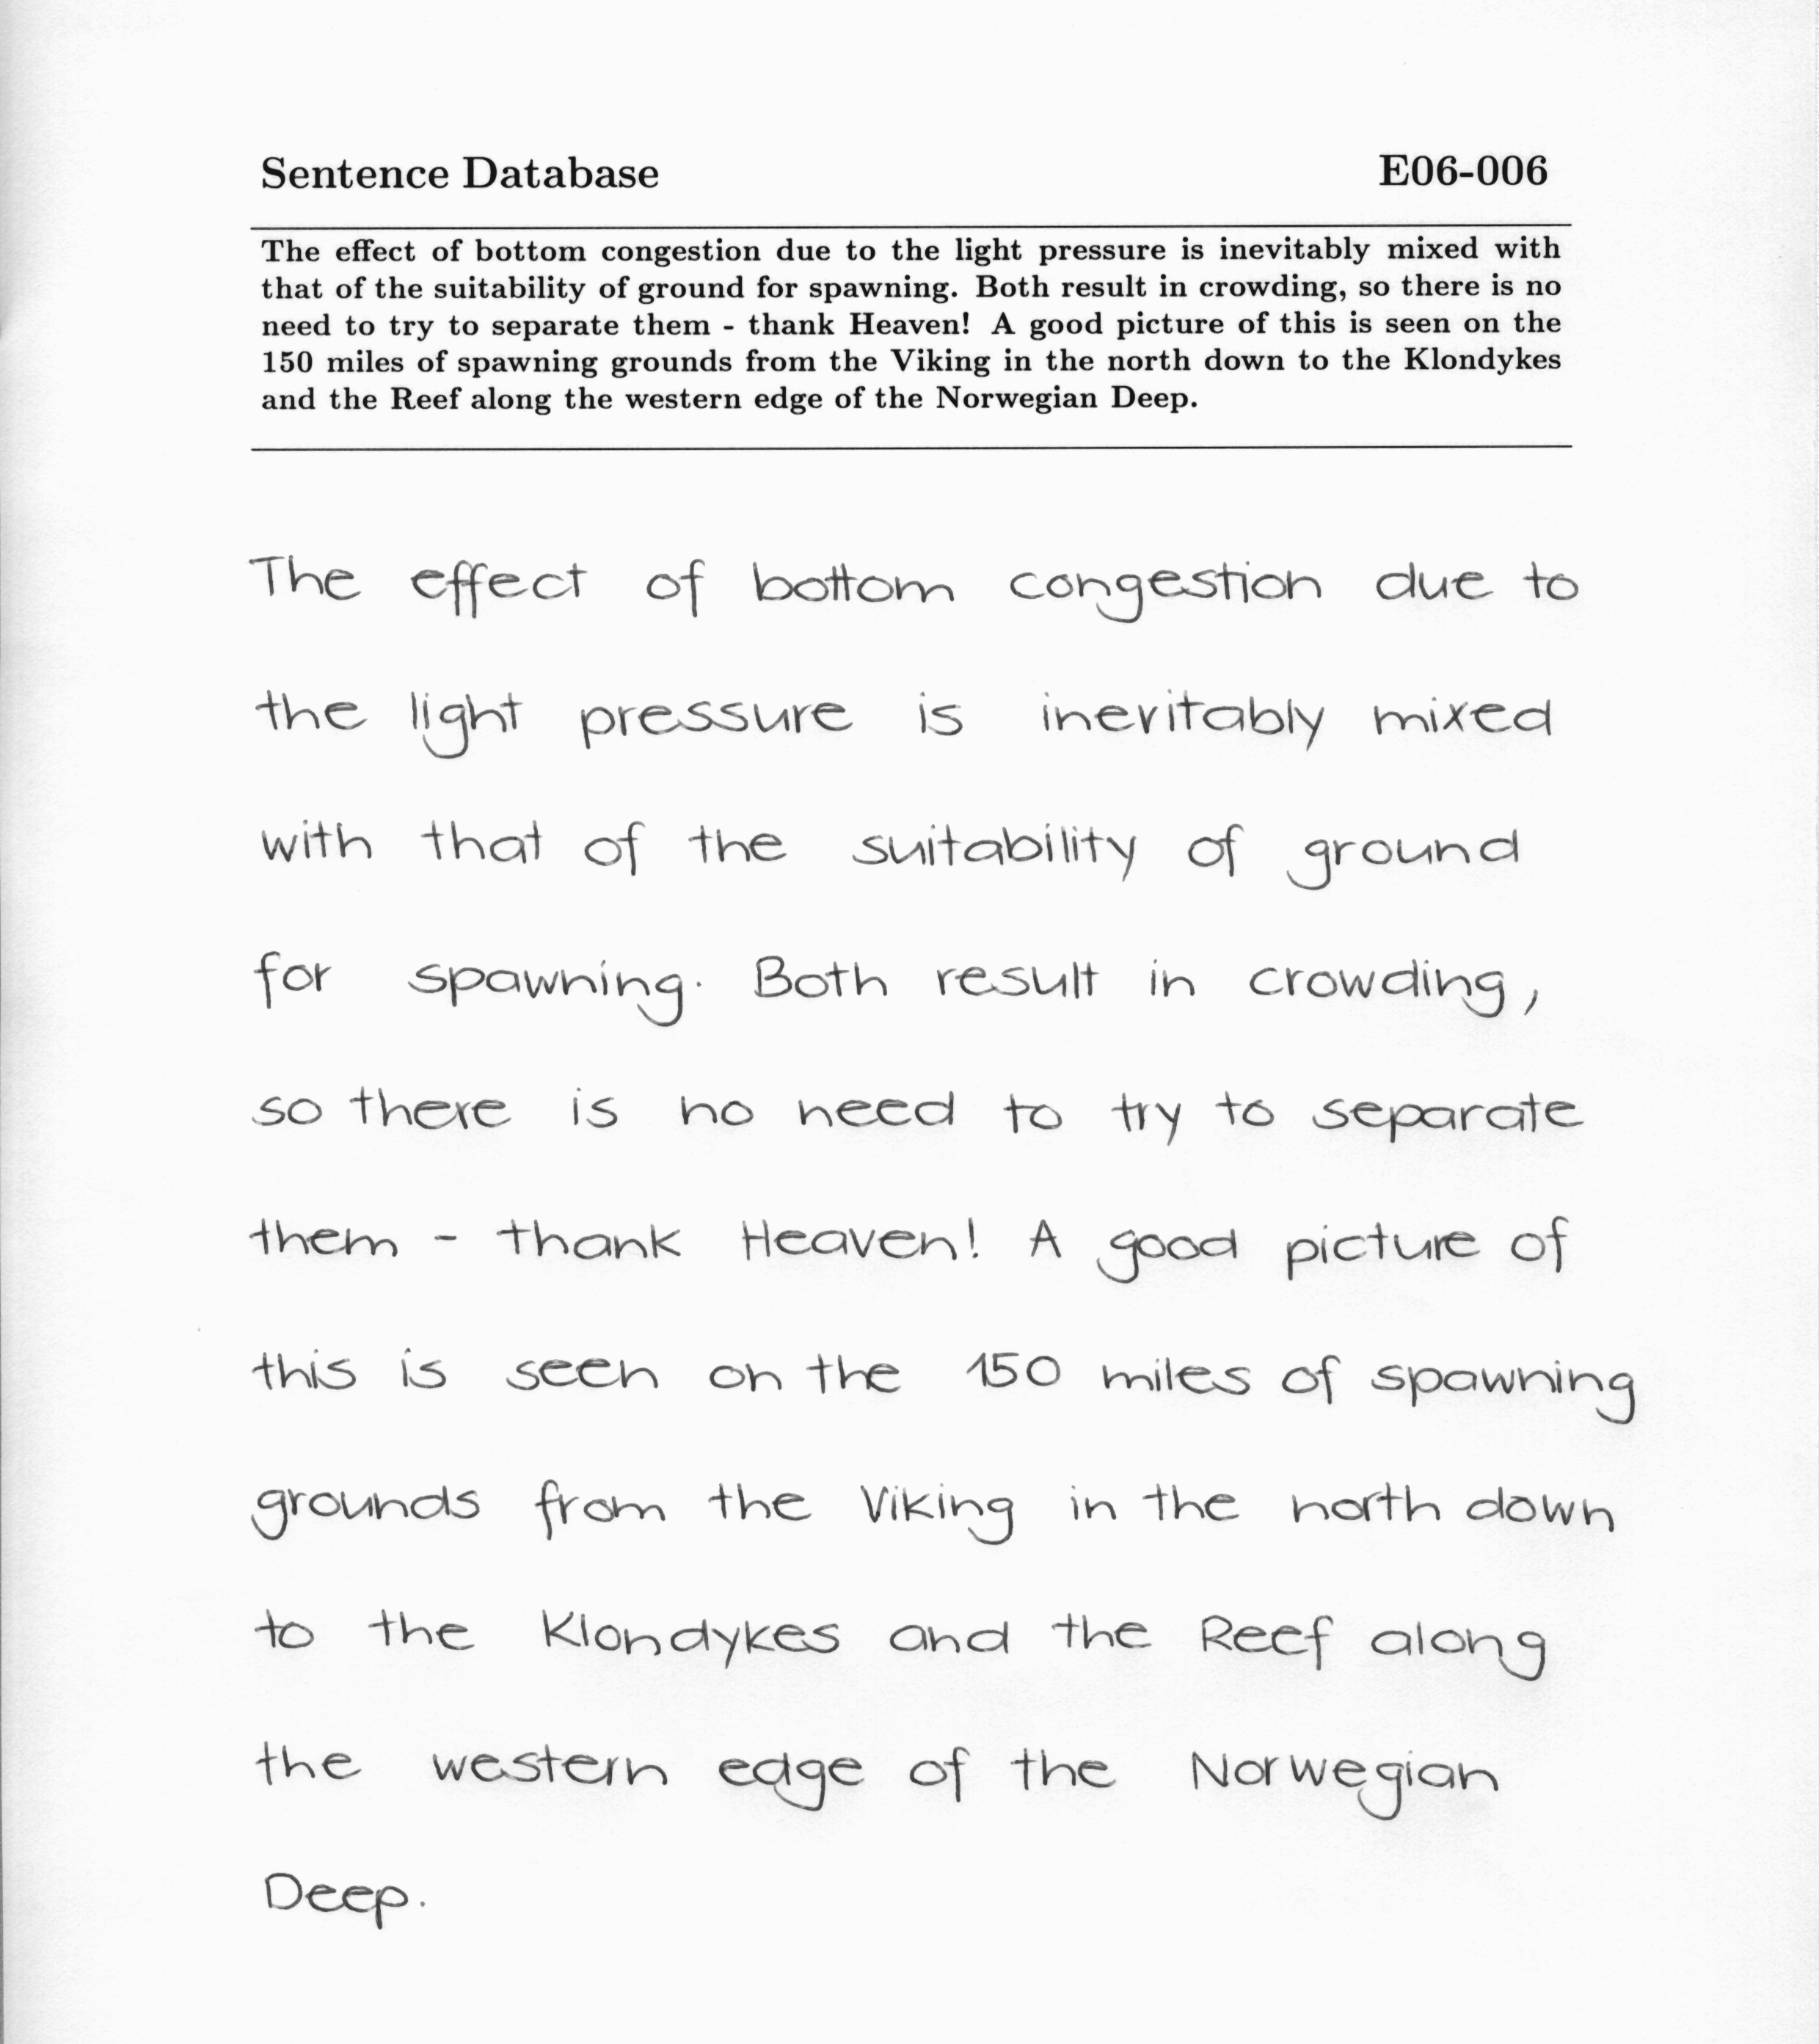 Sentence Database E06-006
The effect of bottom congestion due to the light pressure is inevitably mixed with
that of the suitability of ground for spawning. Both result in crowding, so there is no
need to try to separate them - thank Heaven! A good picture of this is seen on the
150 miles of spawning grounds from the Viking in the north down to the Klondykes
and the Reef along the western edge of the Norwegian Deep.
The effect of bottom congestion due to
the light pressure is inevitably mixed
with that of the suitability of ground
for spawning. Both result in crowding,
so there is no need to try to separate
them - thank Heaven! A good picture of
this is seen on the 150 miles of spawning
grounds from the Viking in the north down
to the Klondykes and the Reef along
the western edge of the Norwegian
Deep.